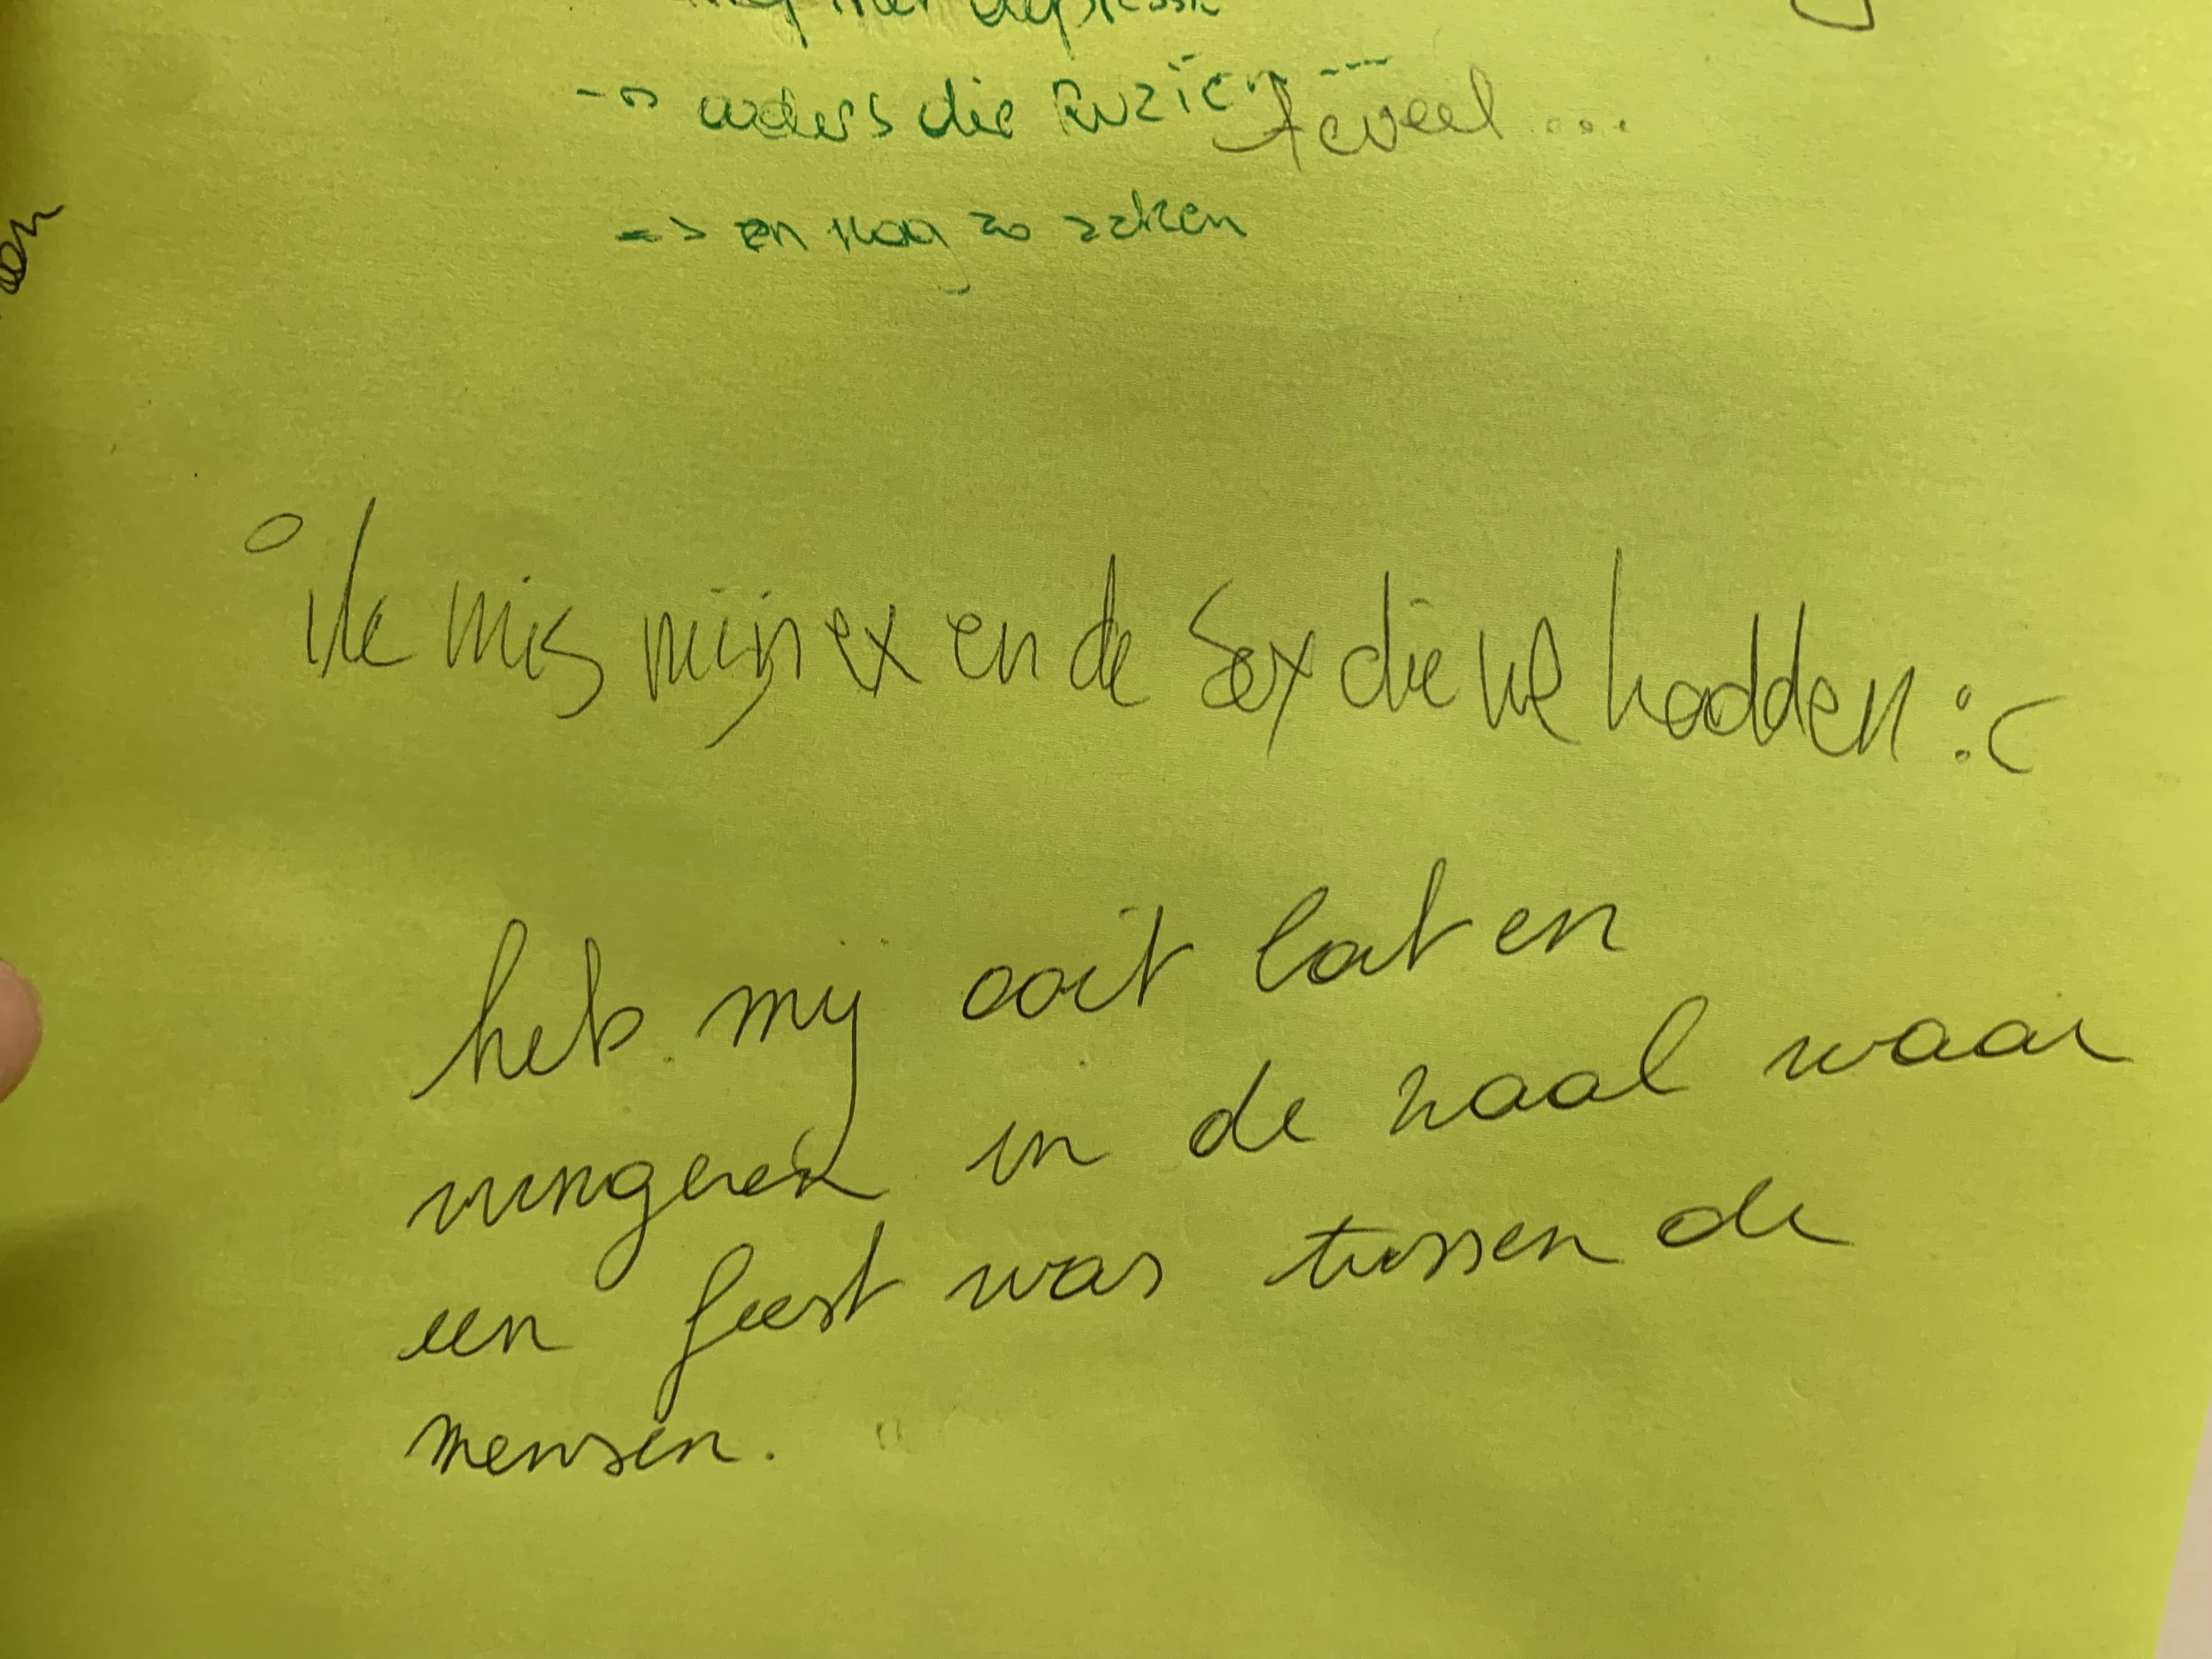 met depressie
→ ouders die Ruziën --- teveel ...
=> en nog zo zaken
ik mis mijn ex en de Sex die we hadden :(
heb mij ooit laten
vingeren in de zaal waar
een feest was tussen de
mensen.